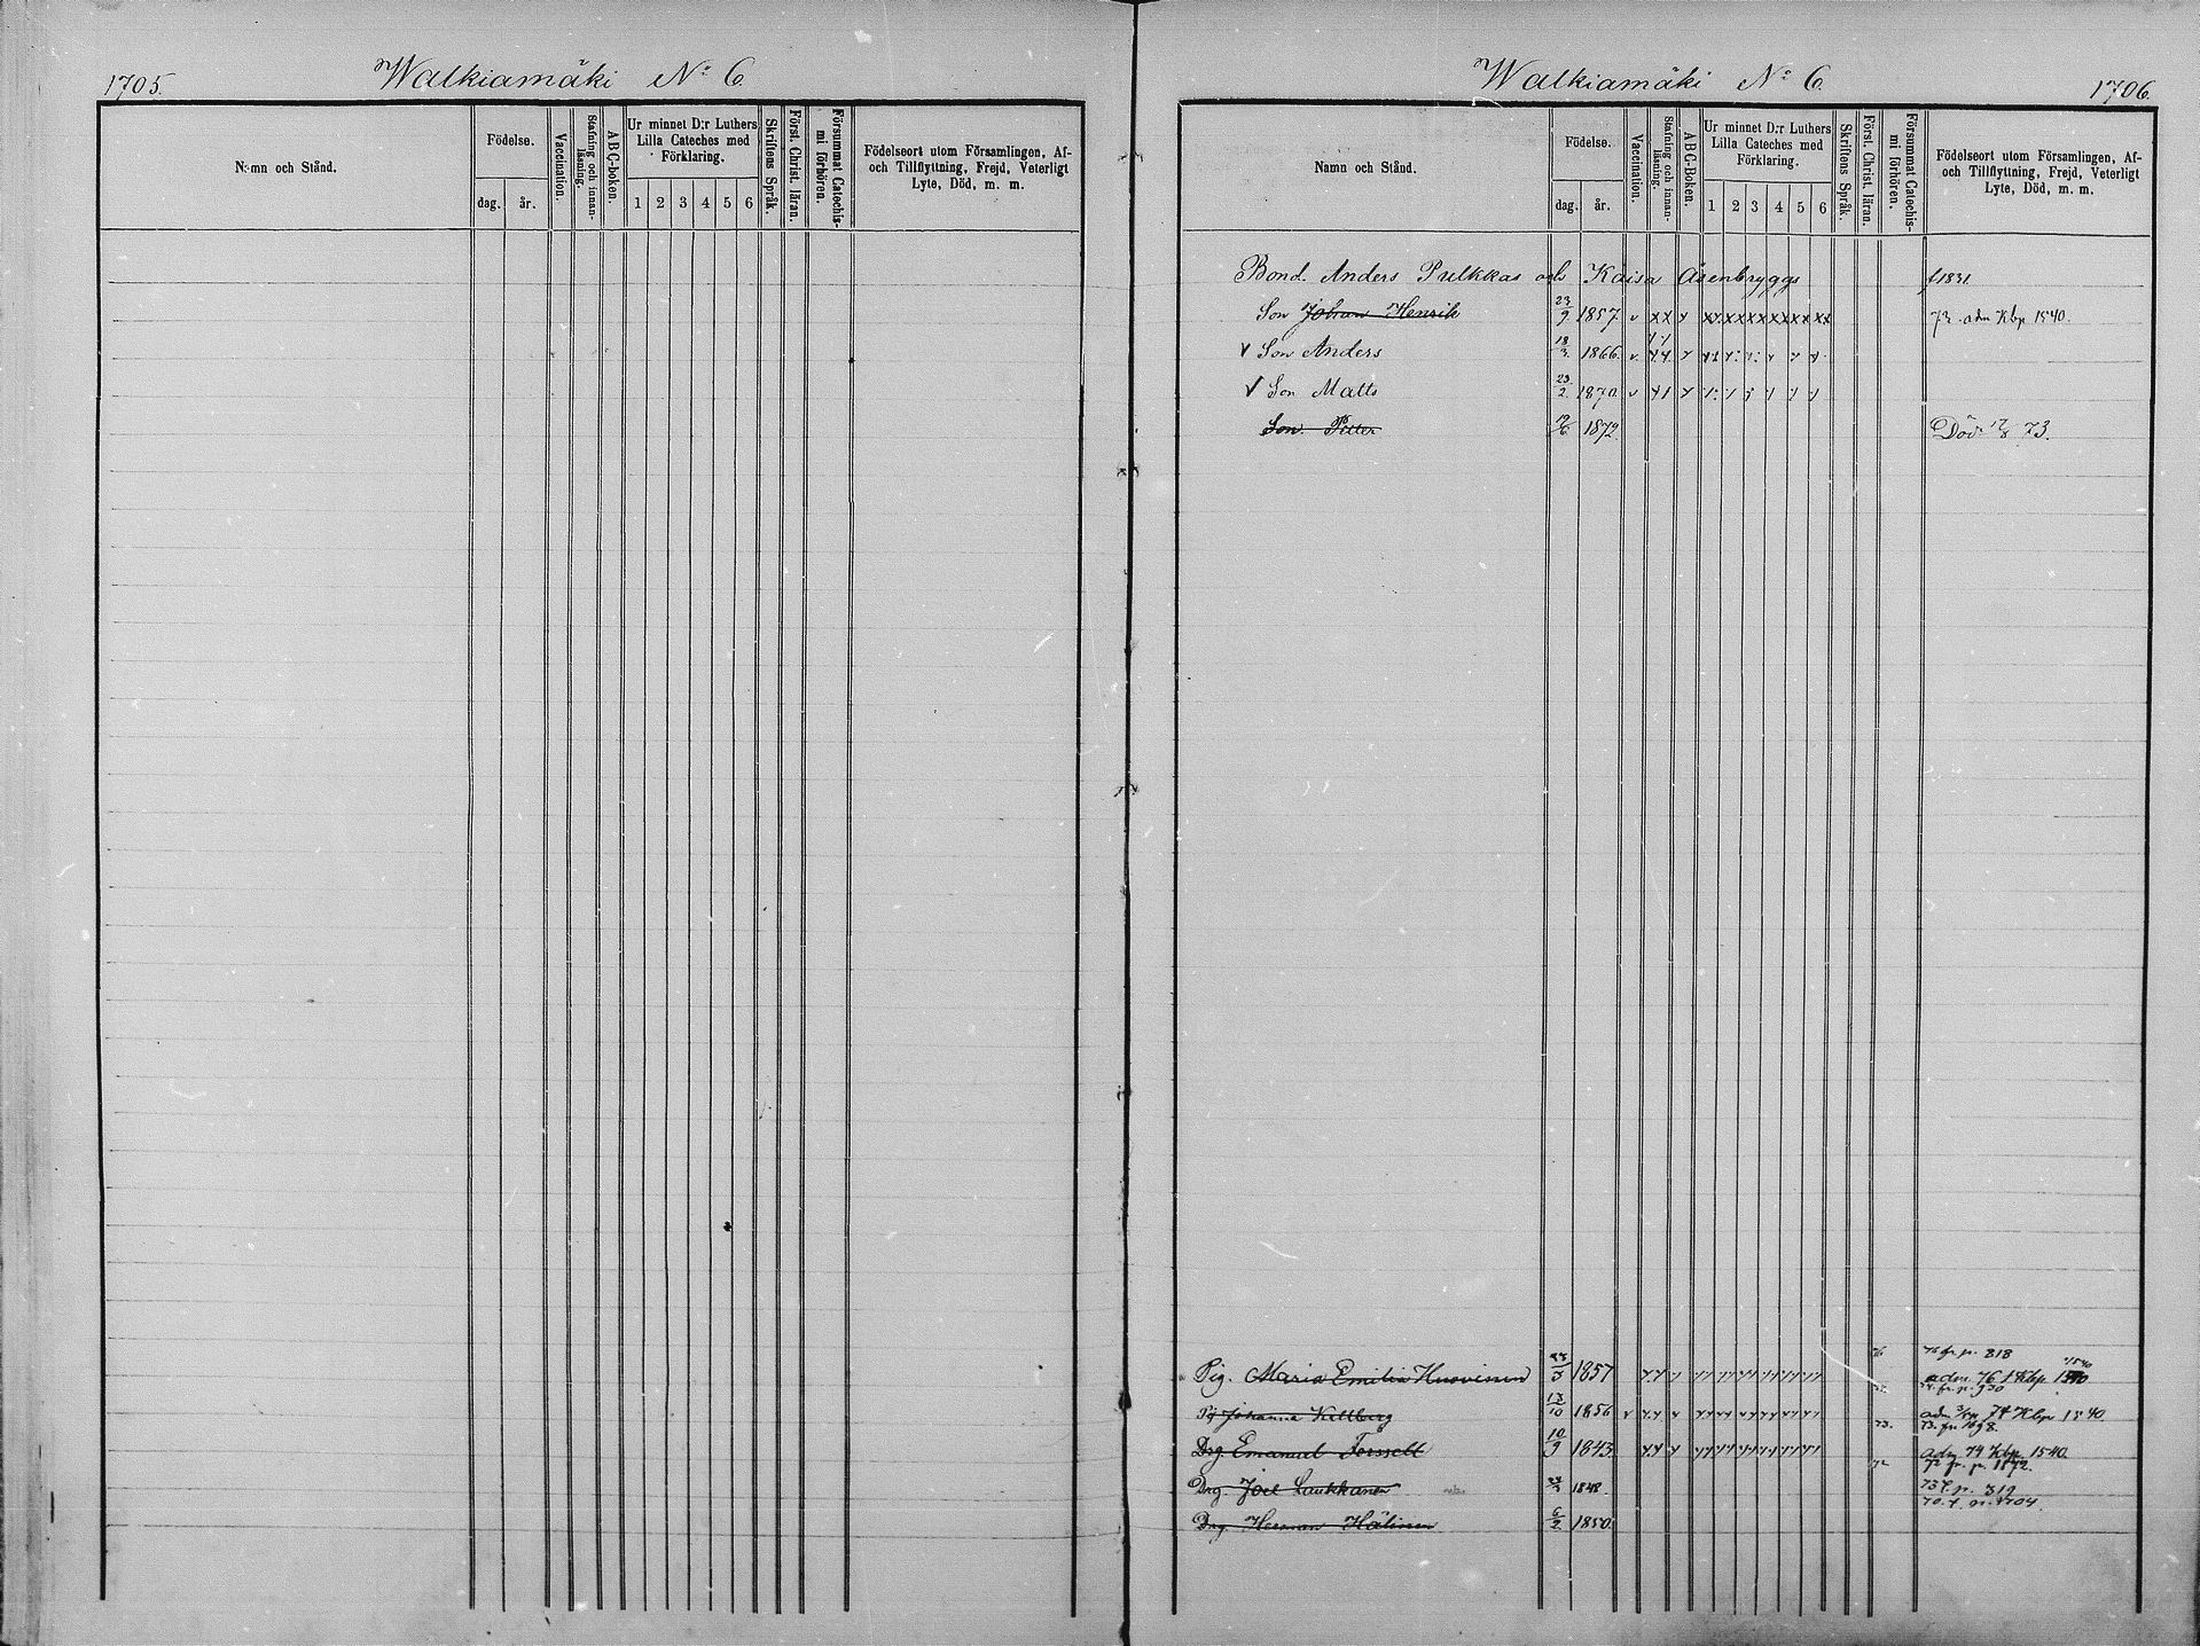 1705.
Walkiamäki No 6
Namn och Stånd.
Födelse.
dag.
år.
Vaccination.
Stafning och innan-läsning.
ABC-boken.
Ur minnet D:r Luthers
Lilla Cateches med
Förklaring.
1 2 3 4 5 6
Skriftens Språk.
Först. Christ. läran.
Försummat Catechis-
mi förhören.
Födelseort utom Församlingen, Af-
och Tillflyttning, Frejd, Veterligt
Lyte, Död, m. m.
Walkiamäki No 6.
1706.
Namn och Stånd.
Födelse.
dag.
år.
Vaccination.
Stafning och innan-läsning.
ABC-Boken.
Ur minnet D:r Luthers
Lilla Cateches med
Förklaring.
1 2 3 4 5 6
Skriftens Språk.
Först. Christ. läran.
Försummat Catechis-
mi förhören.
Födelseort utom Församlingen, Af-
och Tillflyttning, Frejd, Veterligt
Lyte, Död, m. m.
Bond. Anders Pulkkas och Kaisa Äsenbryggs f1831.
Son Johan Henrik 23/9 1857. v xx x xx xx xx xx xx xx 73 adm Kbp 1540.
v Son Anders 18/3 1866. v
v Son Matts 23/2 1870. v
Son Petter 1872 Död 73.
76 76 fr. p. 818
Pig. Maria Emilia Huovinen /3 1857 adm. 76 Kbp 1540
fr. p. 930
Pig Johanna Kellberg 13/10 1856 v adm 74 Kbp 1540
73. 73. fr. 1698.
Drg. Emanuel Forssell 10/9 1843. adm 74 Kbp 1540.
72 72 fr. p. 1872.
Drg. Joel Laukkanen 1848. 73 t. p. 319
70. t. p. 1704.
Drg. Herman Hälinen 6/2 1850.